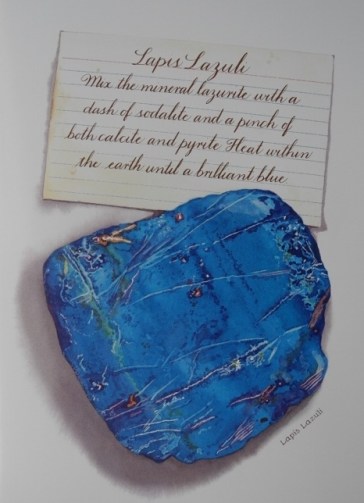 Lapis Lazuli
Mix the mineral lazurite with a
dash of sodalite and a pinch of
both calcite and pyrite Heat within
the earth until a brilliant blue
Lapis Lazuli